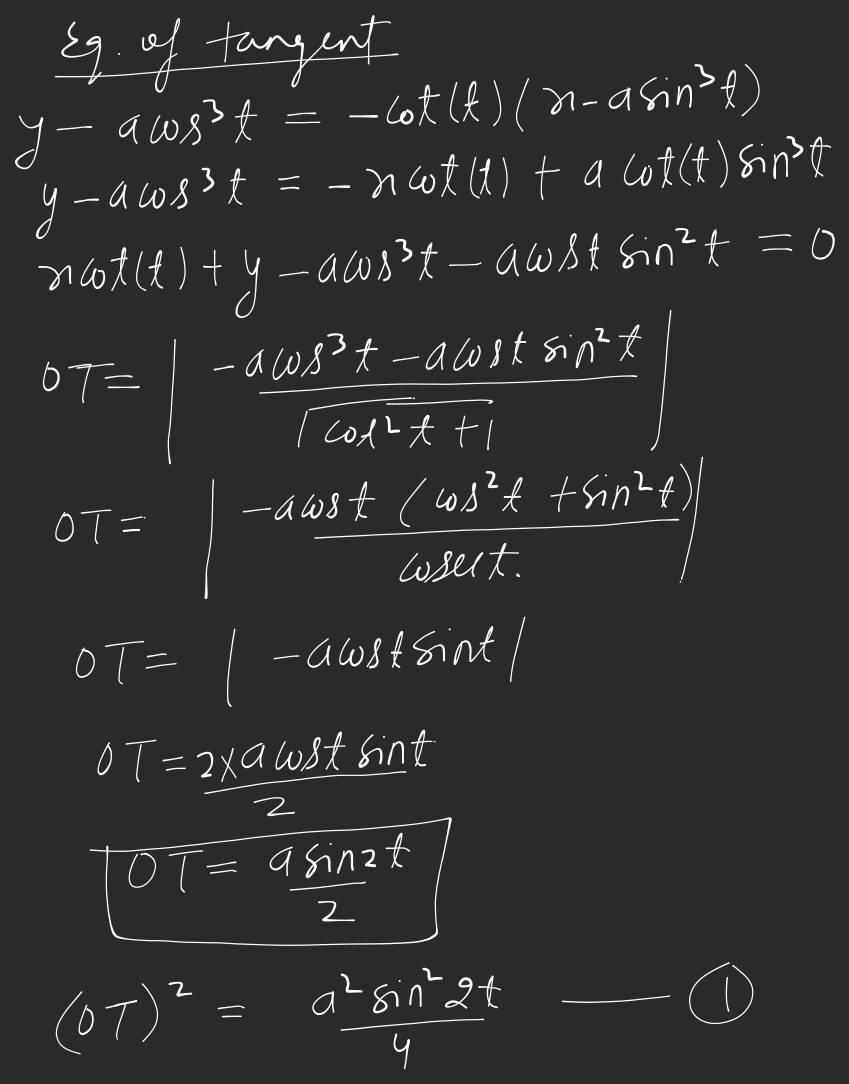 Eq. of tangent
y - a cos³t = -cot(t)(x - a sin³t)
y - a cos³t = -x cot(t) + a cot(t) sin³t
x cot(t) + y - a cos³t - a cos t sin²t = 0
OT = | (-a cos³t - a cos t sin²t) / √(cot²t + 1) |
OT = | -a cos t (cos²t + sin²t) / cosec t. |
OT = | -a cos t sin t |
OT = 2 × a cos t sin t / 2
OT = a sin 2t / 2
(OT)² = a² sin² 2t / 4 — ①